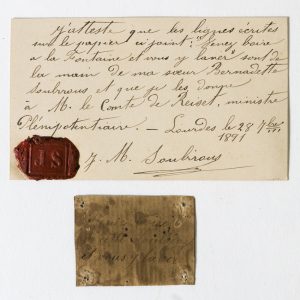 J'atteste que les lignes écrites
sur le papier ci joint: "Venez boire
à la Fontaine et vous y laver" sont de
la main de ma sœur Bernadette
Soubirous et que je les donne
à M. le Comte de Reiset, ministre
Plénipotentiaire. — Lourdes le 28 7bre
1891
J. M. Soubirous
J S
et vous y laver